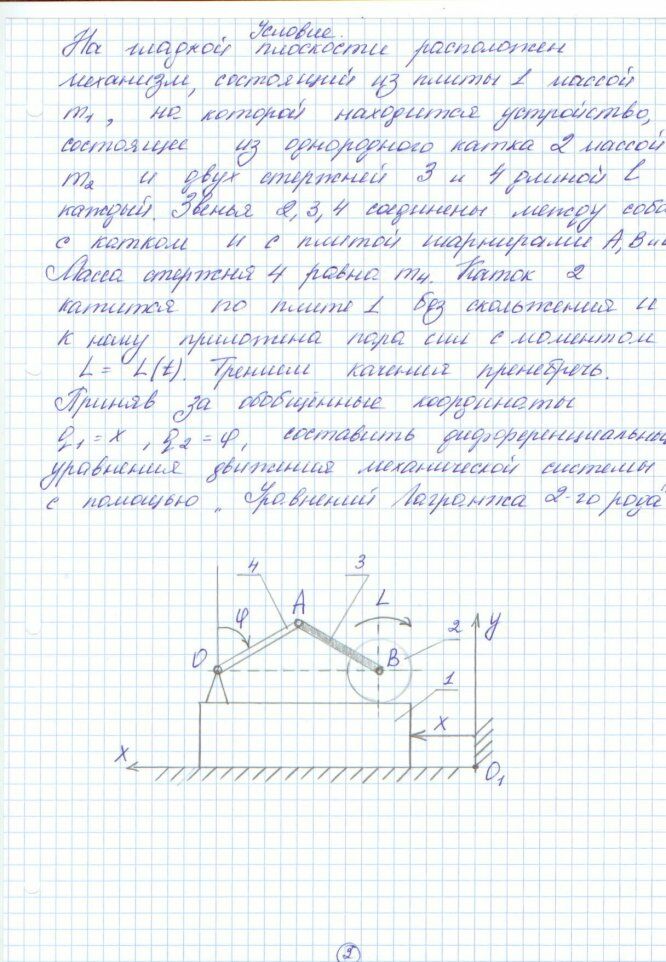 Условие.
На гладкой плоскости расположен
механизм, состоящий из плиты 1 массой
m₁, на которой находится устройство,
состоящее из однородного катка 2 массой
m₂ и двух стержней 3 и 4 длиной l
каждый. Звенья 2, 3, 4 соединены между собо
с катком и с плитой шарнирами A, B и
Масса стержня 4 равна m₄. Каток 2
катится по плите 1 без скольжения и
к нему приложена пара сил с моментом
L = L(t). Трением качения пренебречь.
Приняв за обобщенные координаты
q₁ = x, q₂ = φ, составить дифференциальны
уравнения движения механической системы
с помощью „Уравнений Лагранжа 2-го рода"
4 3
A L
φ 2 y
O B
1
x
x O₁
2